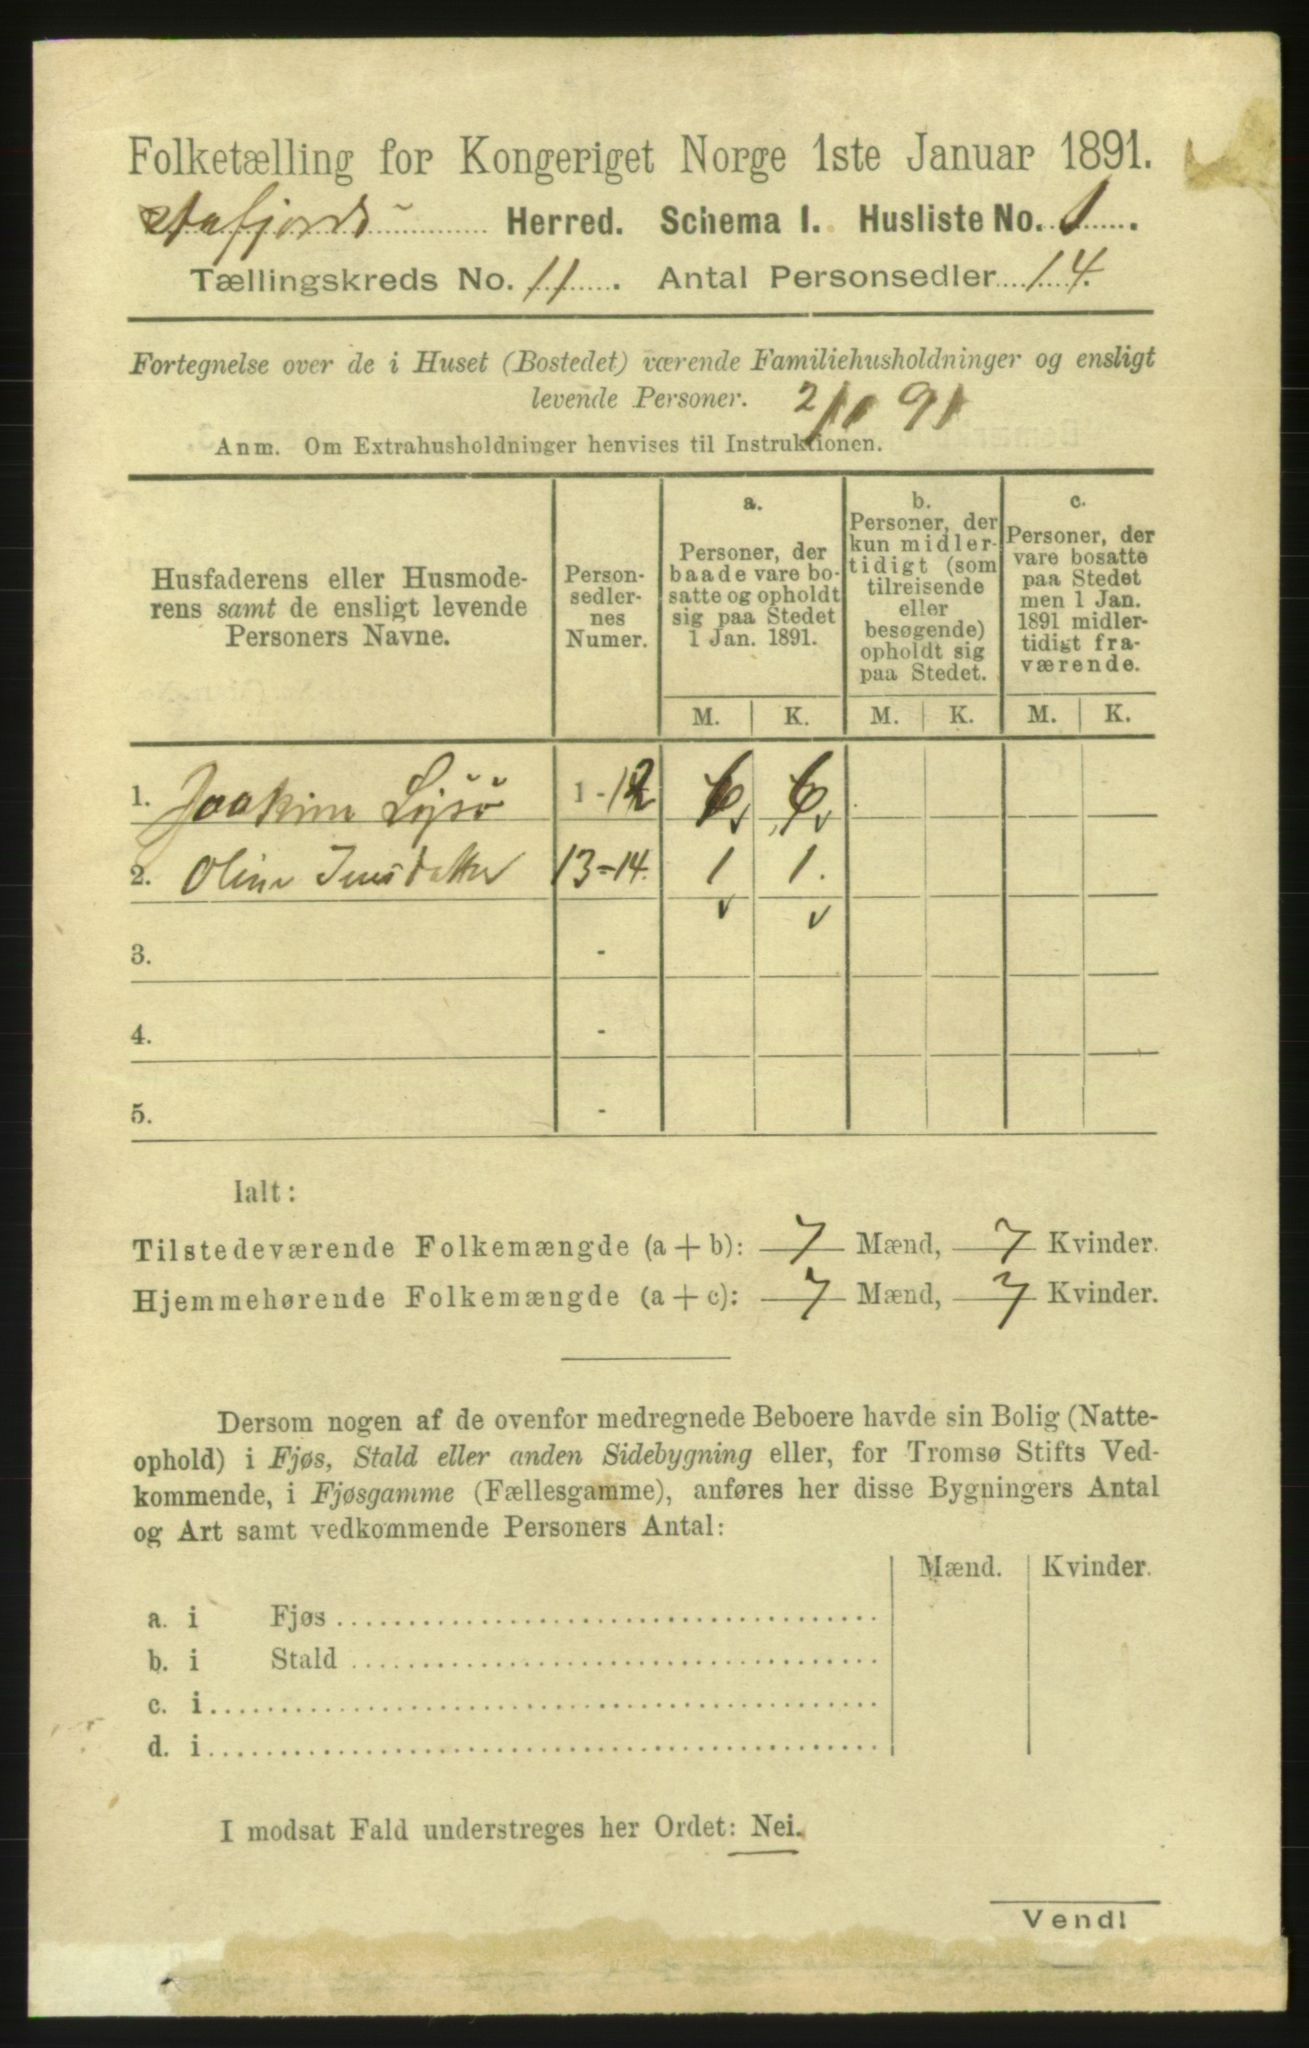 Folketælling for Kongeriget Norge 1ste Januar 1891.
Aafjords Herred. Schema I. Husliste No. 1.
Tællingskreds No. 11. Antal Personsedler 14.
Fortegnelse over de i Huset (Bostedet) værende Familiehusholdninger og ensligt
levende Personer. 2/1 91
Anm. Om Extrahusholdninger henvises til Instruktionen.
Husfaderens eller Husmode-
rens samt de ensligt levende
Personers Navne.
Person-
sedler-
nes
Numer.
a.
Personer, der
baade vare bo-
satte og opholdt
sig paa Stedet
1 Jan. 1891.
b.
Personer, der
kun midler-
tidigt (som
tilreisende
eller
besøgende)
opholdt sig
paa Stedet.
c.
Personer, der
vare bosatte
paa Stedet
men 1 Jan.
1891 midler-
tidigt fra-
værende.
M. K. M. K. M. K.
1. Joakim Lysø 1 - 12 6 6
2. Oline Jensdatter 13 - 14. 1 1.
3. -
4. -
5. -
Ialt:
Tilstedeværende Folkemængde (a + b): 7 Mænd, 7 Kvinder.
Hjemmehørende Folkemængde (a + c): 7 Mænd, 7 Kvinder.
Dersom nogen af de ovenfor medregnede Beboere havde sin Bolig (Natte-
ophold) i Fjøs, Stald eller anden Sidebygning eller, for Tromsø Stifts Ved-
kommende, i Fjøsgamme (Fællesgamme), anføres her disse Bygningers Antal
og Art samt vedkommende Personers Antal:
Mænd. Kvinder.
a. i Fjøs
b. i Stald
c. i
d. i
I modsat Fald understreges her Ordet: Nei.
Vend!